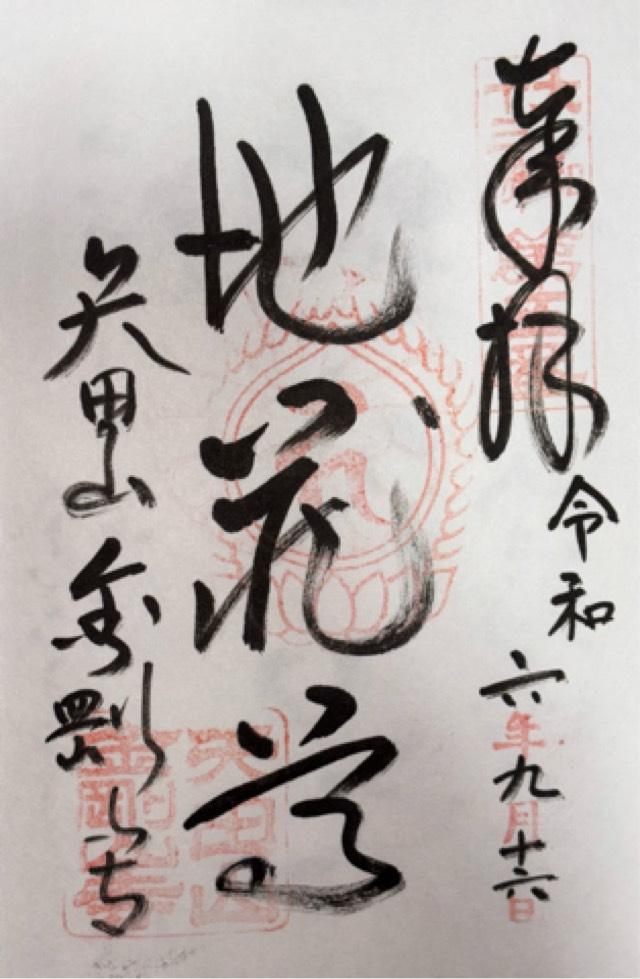 奉拝
令和
六年九月十六日
地蔵尊
矢田山
金剛山寺
矢田山
金剛山寺